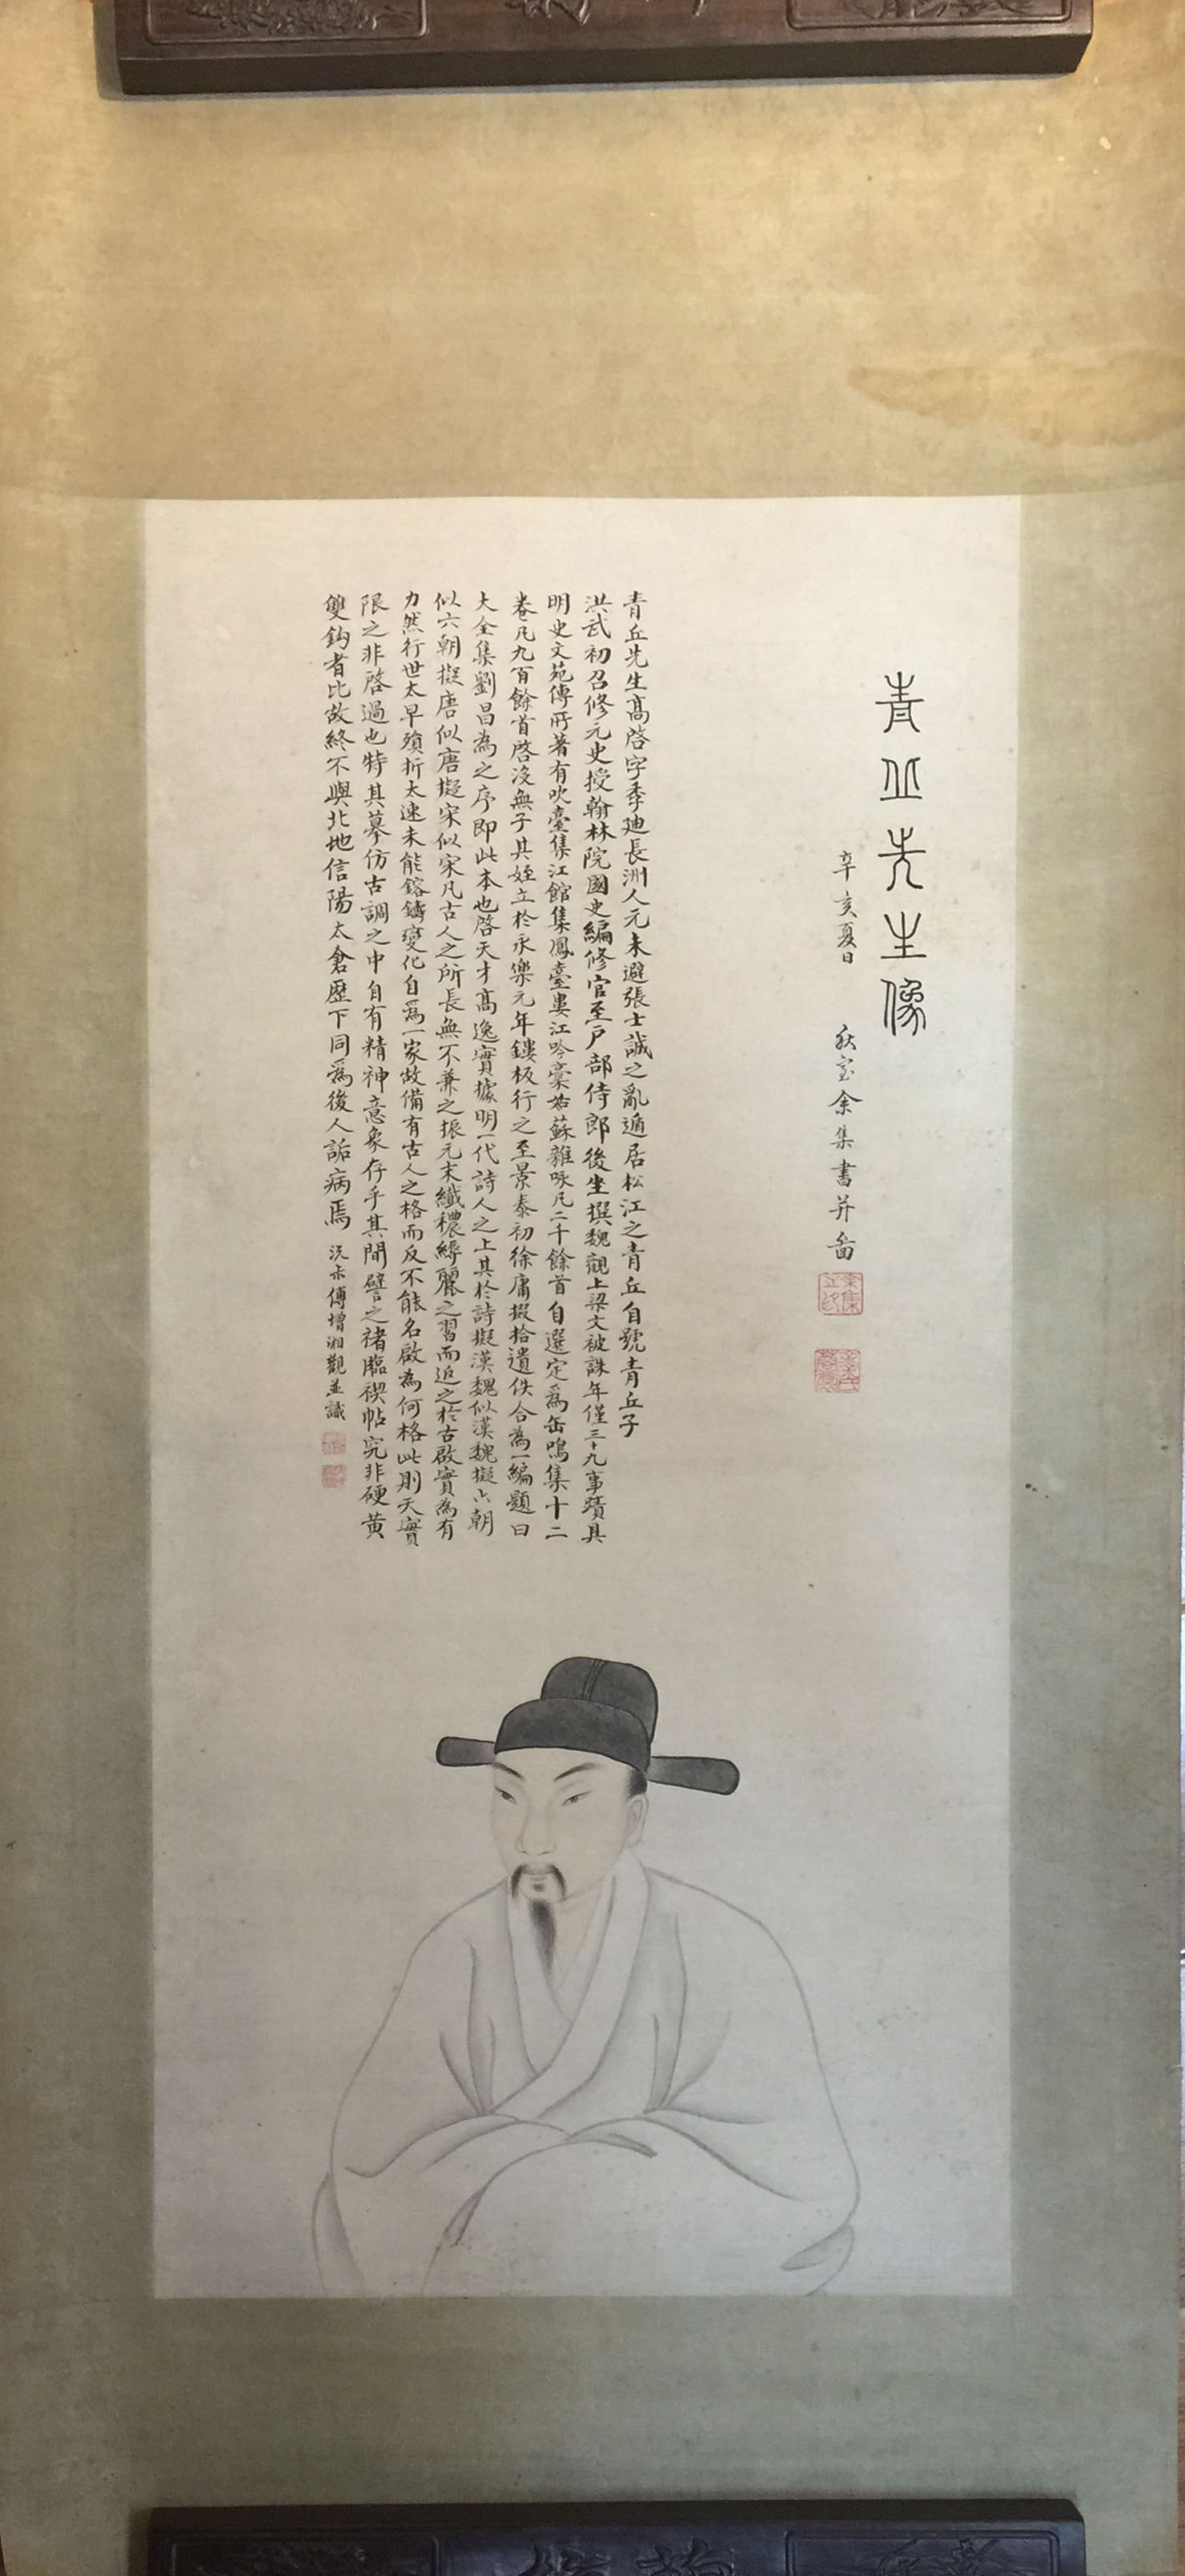 青丘先生像
辛亥夏日 秋室余集書并圖
青丘先生高啓字季迪長洲人元末避張士誠之亂遁居松江之青丘自號青丘子
洪武初召修元史授翰林院國史編修官至戶部侍郎後坐撰魏觀上梁文被誅年僅三十九事蹟具
明史文苑傳所著有吹臺集江館集鳳臺婁江吟稾姑蘇雜咏凡二千餘首自選定爲缶鳴集十二
卷凡九百餘首啓沒無子其姪立於永樂元年鏤板行之至景泰初徐庸掇拾遺佚合為一編題曰
大全集劉昌為之序即此本也啓天才高逸實據明一代詩人之上其於詩擬漢魏似漢魏擬六朝
似六朝擬唐似唐擬宋似宋凡古人之所長無不兼之振元末纖穠縟麗之習而返之於古啟實為有
力然行世太早殞折太速未能鎔鑄變化自爲一家故備有古人之格而反不能名啟為何格此則天實
限之非啓過也特其摹仿古調之中自有精神意象存乎其間譬之褚臨禊帖究非硬黃
雙鈎者比故終不與北地信陽太倉歷下同爲後人詬病焉 沅朩傅增湘觀並識